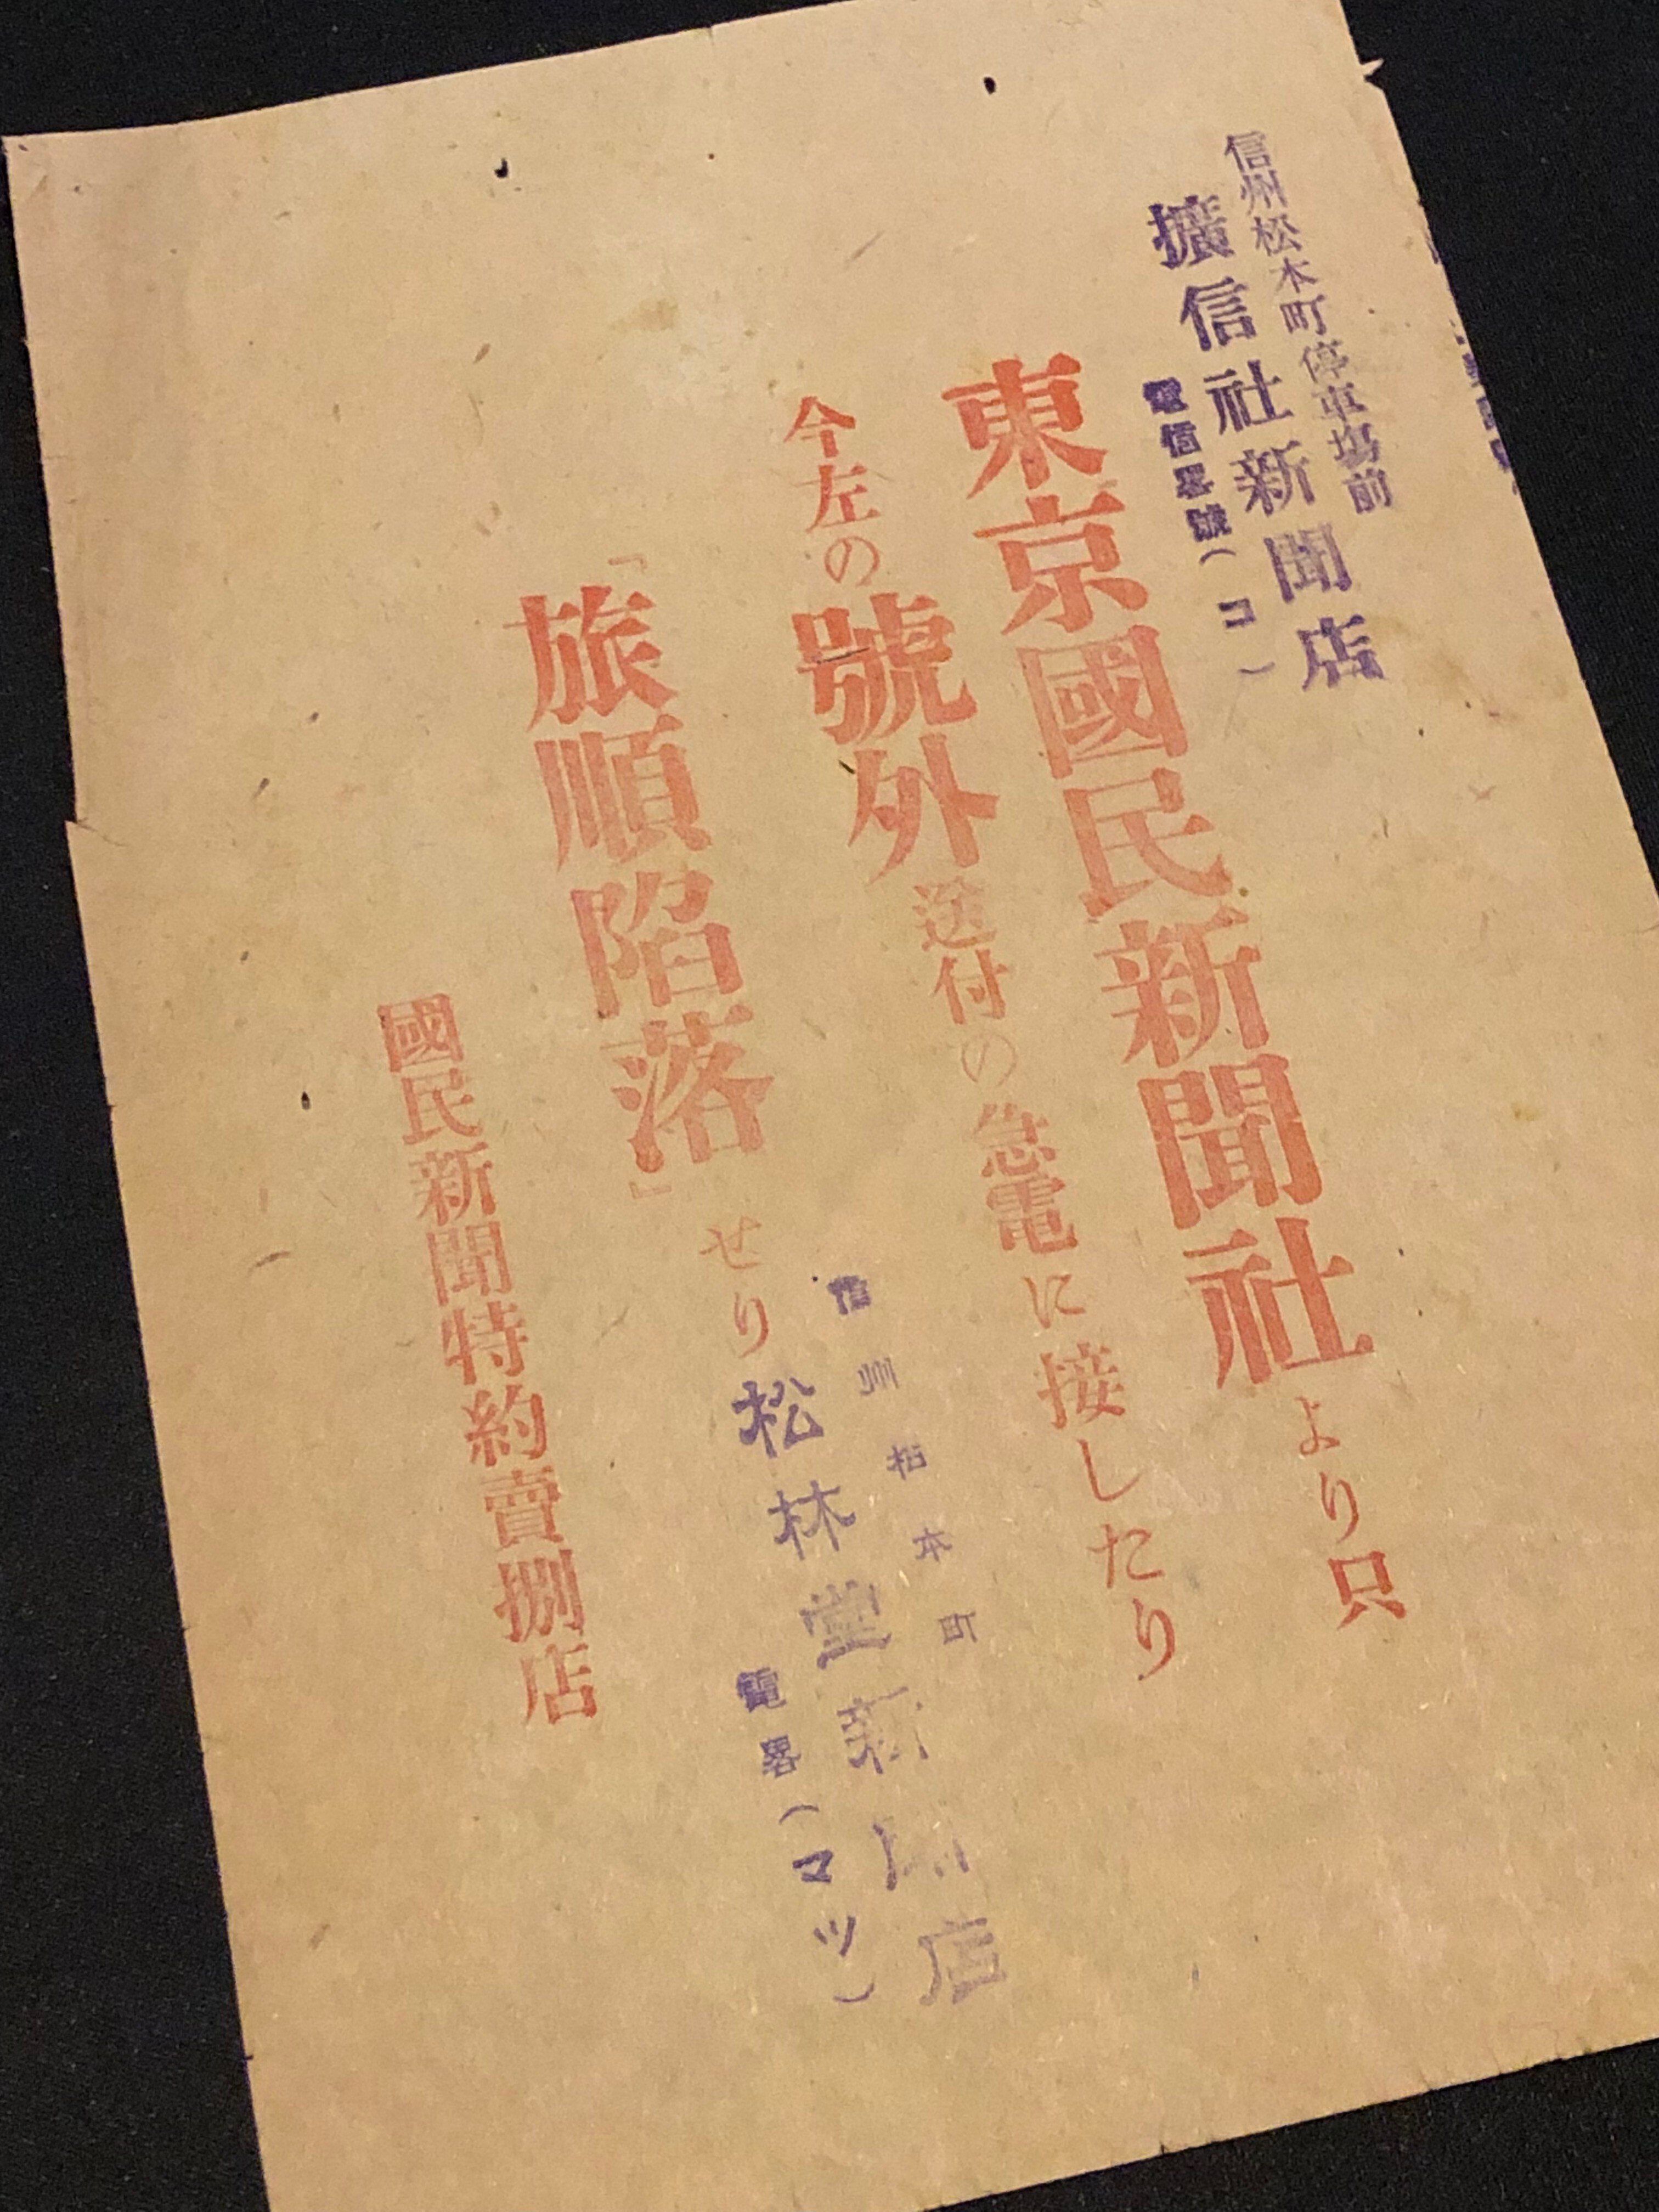 信州松本町停車場前
擴信社新聞店
電信畧號(コ)
東京國民新聞社より只
今左の號外送付の急電に接したり
「旅順陥落」せり
信州松本町
松林堂新聞店
電畧(マツ)
國民新聞特約賣捌店